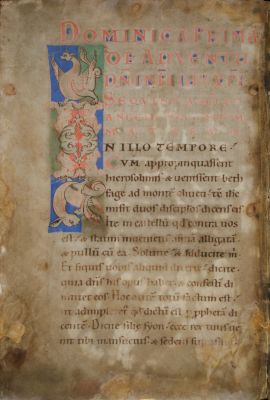 DOMINICA PRIMA
DE ADVENTU
DOMINI
SEQ
N ILLO TEMPORE
UM appropinquassent
hierosolimis & venissent beth
fage ad monte oliveti tc ihs
misit duos discipulos dicens eis
Ite in castellu qd contra vos
est & statim invenietis asina alligata
& pullu cu ea Solvite & adducite m
Et siquis vobis aliquid dixerit dicite
quia dns his opus habet & confesti di
mittet eos Hoc aute totu factum est
ut adimpleret qd dictu est p ppheta di
cente Dicite filie syon ecce rex tuus ve
nit tibi mansuetus & sedens sup asina